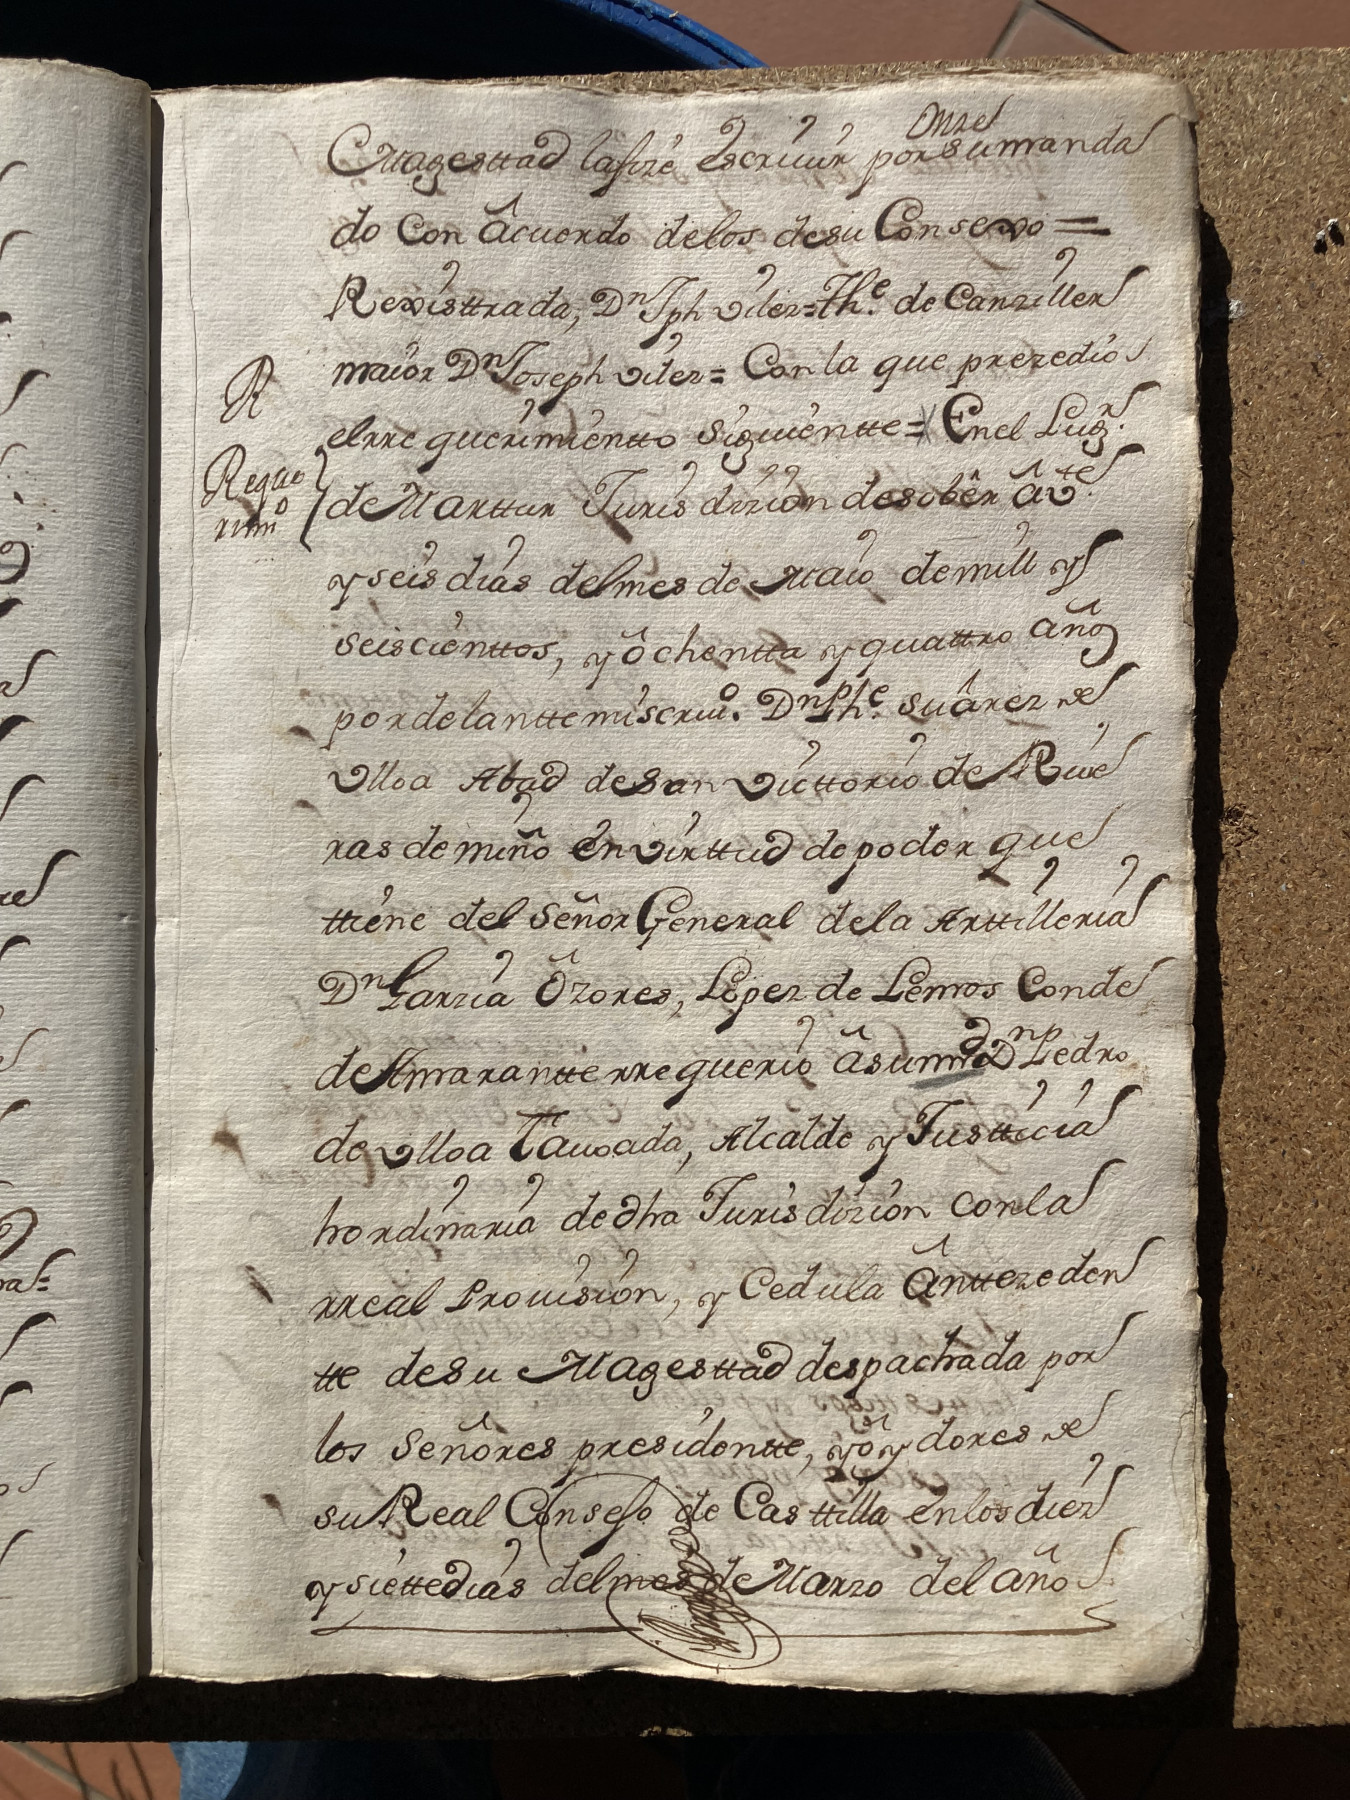 Onze
Magesttad la fize escriuir por su manda
do Con acuerdo de los de su Consexo =
Rexisttrada, Dn Jph Uelez = The. de Canziller
maior Dn Joseph Uelez = Con la que prezedio
R
el rrequerimientto siguientte = En el Lugr.
Reque
rimto
de Marttur Jurisdizion de sobêr âvte.
y seis dias del mes de Maio de mill y
seiscienttos, y ôchentta y quattro años
por delantte mi scriuo. Dn Phe. Suârez de
Ulloa Abad de San Victtorio de Riue
ras de miño en virttud de poder que
ttiene del Señor General de la Arttilleria
Dn Garzia Ôzores, Lopez de Lemos Conde
de Amarantte rrequerio â su mrd Dn Pedro
de Ulloa Tauoada, Alcalde y Justticia
hordinaria de dha Jurisdizion con la
rreal Prouision, y Cedula Ânttezeden
tte de su Magesttad despachada por
los Señores presidentte, y ôydores de
su Real Consejo de Casttilla en los diez
y siette dias del mes de Marzo del año